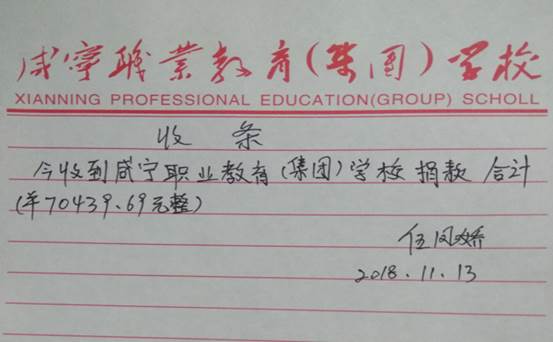 咸宁職業教育(集团)学校
XIANNING PROFESSIONAL EDUCATION(GROUP) SCHOLL
收 条
今收到咸宁职业教育(集团)学校捐款 合计
(¥70439.69元整)
伍凤娇
2018.11.13